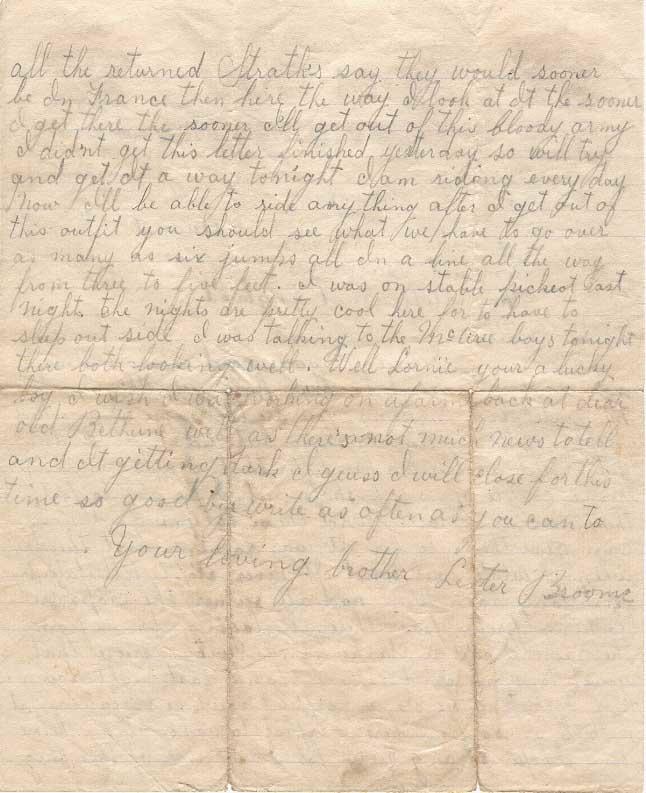 all the returned Straths say they would sooner
be In France then here the way I look at It the sooner
I get there the sooner I'll get out of this bloody army
I didnt get this letter finished yesterday so will try
and get It a way tonight I am riding every day
Now I'll be able to ride anything after I get out of
this outfit you should see what we have to go over
as many as six jumps all In a line all the way
from three to five feet. I was on stable picket last
night. the nights are pretty cool here for to have to
sleep out side I was talking to the boys tonight
there both looking well. Well Lornie your a lucky
boy I wish I was working on a farm back at dear
old Bethune well as there's not much news to tell
and It getting dark I guess I will close for this
time so good bye write as often as you can to
Your loving brother Lester Broome